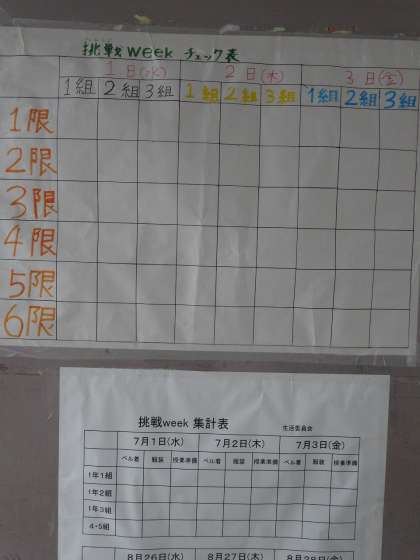 挑戦week チェック表
1日(水) 2日(木) 3日(金)
1組 2組 3組 1組 2組 3組 1組 2組 3組
1限
2限
3限
4限
5限
6限
挑戦week 集計表 生活委員会
7月1日(水) 7月2日(木) 7月3日(金)
ベル着 服装 授業準備 ベル着 服装 授業準備 ベル着 服装 授業準備
1年1組
1年2組
1年3組
4・5組
8月26日(水) 8月27日(木) 8月28日(金)